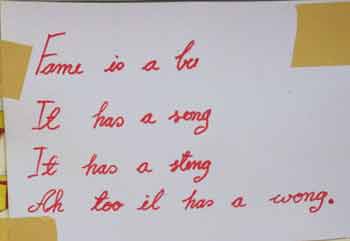 Fame is a be
It has a song
It has a sting
Ah too it has a wong.